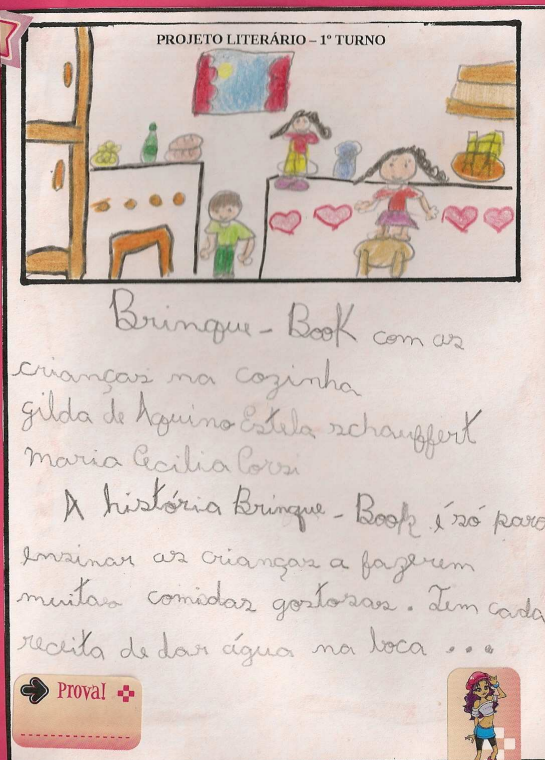 PROJETO LITERÁRIO – 1º TURNO
Brinque - Book com as
crianças na cozinha
Gilda de Aquino Estela schauffert
Maria Cecilia Corsi
A história Brinque - Book é só para
ensinar as crianças a fazerem
muitas comidas gostosas. Tem cada
receita de dar água na boca ...
Prova!